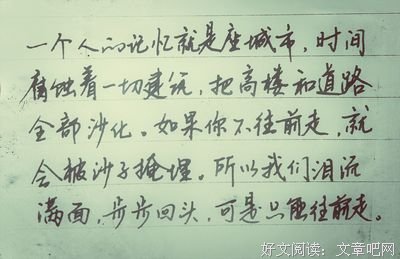 一个人的记忆就是座城市，时间
腐蚀着一切建筑，把高楼和道路
全部沙化。如果你不往前走，就
会被沙子掩埋。所以我们泪流
满面，步步回头，可是只能往前走。
好文阅读：文章吧网